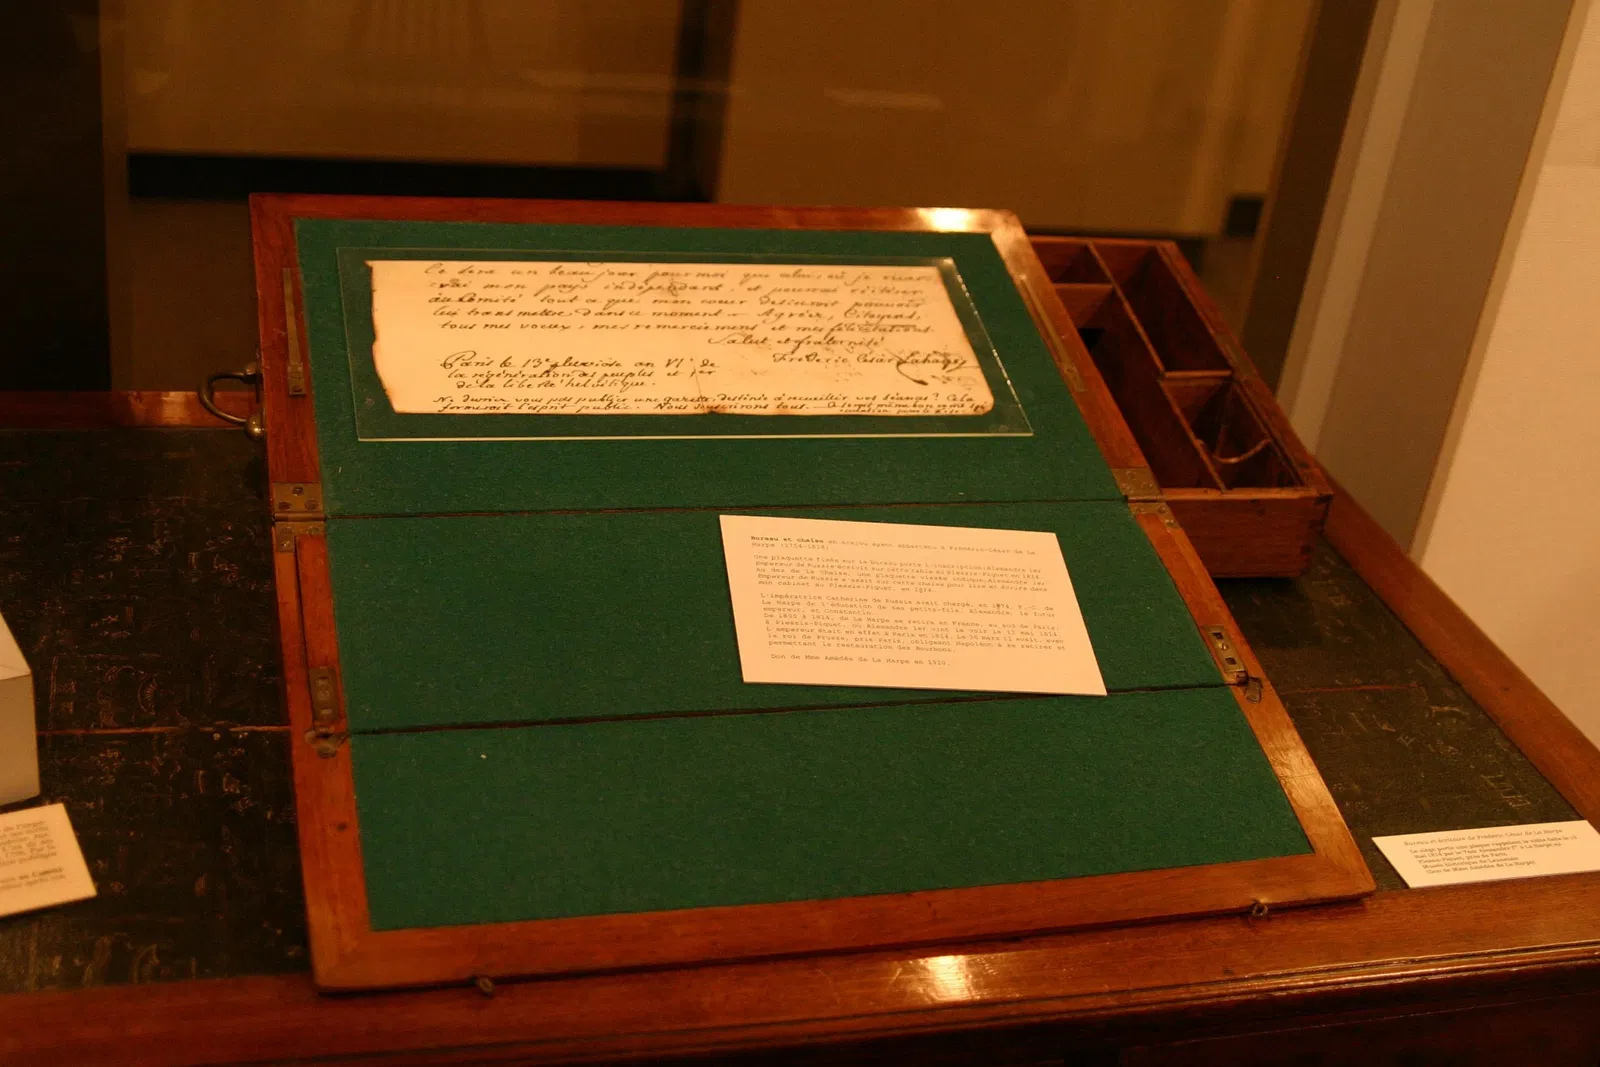 Ce sera un beau jour pour moi que celui, où je
mon pays indépendant, et pourrai réitérer
au Comité tout ce que mon coeur desireroit pouvoir
lui transmettre dans ce moment. Agréez, Citoyens,
tous mes voeux, mes remerciemens et mes félicitations.
Salut et fraternité
Frédéric César Laharpe
Paris le 13e pluviose an VIe de
la régénération des peuples et 1er
de la liberté helvétique.
devriez vous pas publier une gazette, destinée à recueillir vos séances? Cela
formeroit l'esprit public. Nous souscrirons tous.
Bureau et chaise en acajou ayant appartenu à Frédéric-César de La
Harpe (1754-1838)
Une plaquette fixée sur le bureau porte l'inscription: Alexandre 1er
Empereur de Russie écrivit sur cette table au Plessis-Piquet en 1814.
Au dos de la chaise, une plaquette vissée indique: Alexandre 1er
Empereur de Russie s'assit sur cette chaise pour lire et écrire dans
mon cabinet au Plessis-Piquet, en 1814.
L'impératrice Catherine de Russie avait chargé, en F.-C. de
La Harpe de l'éducation de ses petits-fils, Alexandre, le futur
empereur, et Constantin.
De à de La Harpe se retira en France, au sud de Paris,
à Plessis-Piquet, où Alexandre 1er vint le voir le mai 1814.
L'empereur était en effet à Paris en 1814. Le 30 mars il avait, avec
le roi de Prusse, pris Paris, obligeant Napoléon à se retirer et
permettant la restauration des Bourbons.
Don de Mme Amédée de La Harpe en
Bureau et écritoire de Frédéric César de La Harpe
Le siège porte une plaque rappelant la visite faite le
mai 1814 par le Tsar Alexandre Ier à La Harpe au
Plessis Piquet, près de Paris.
Musée historique de Lausanne
(Don de Mme Amédée de La Harpe)